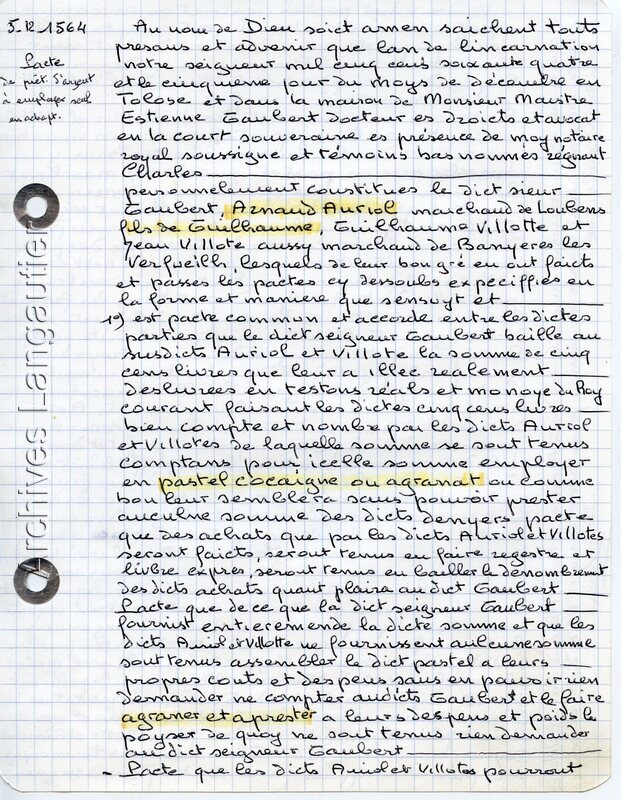 5.12.1564
Pacte
de prêt. S'argent
à employer seul
en achapt.
Archives Langautier
Au nom de Dieu soict amen saichent touts
presans et advenir que lan de lincarnation
notre seigneur mil cinq cens soixante quatre
et le cinquieme jour du moys de décembre en
Tolose et dans la maison de Monsieur Maistre
Estienne Gaubert Docteur es Droicts et avocat
en la court souveraine es présence de moy notaire
royal soussigne et témoins bas nommés régnant
Charles
personnelement constitues le dict sieur
Gaubert, Arnaud Auriol marchand de Loubens
fils de Guilhaume, Guilhaume Villotte et
Jean Villote aussy marchand de Banyeres les
Verfueilh, lesquels de leur bon gré en out faicts
et passes les pactes cy dessoubs expeciffies en
la forme et maniere que sensuyt et
19) est pacte commun et accorde entre les dictes
parties que le dict seigneur Gaubert baille au
susdicts Auriol et Villote la somme de cinq
cens livres que leur a illec realement
deslivrees en testons réals et monoye du Roy
courant faisant les dictes cinq cens livres
bien compte et nombre par les dicts Auriol
et Villotes de laquelle somme se sout tenus
comptans pour icelle somme employer
en pastel cocaigne ou agranat ou comme
bon leur semblera sans pouvoir prester
auculne somme des dicts denyers, pacte
que des achats que par les dicts Auriol et Villotes
seront faicts, seront tenus en faire regestre et
livbre expres, seront tenus en bailler le dénombrement
des dicts achats quant plaira au dict Gaubert
Pacte que de ce que la dict seigneur Gaubert
fournist entieremende la dicte somme et que les
dicts Auriol et Villotte ne fournissent aulcune somme
sout tenus assembler le dict pastel a leurs
propres couts et despens sans en pouvoir rien
demander ne compter au dicts Gaubert et le faire
agraner et aprester a leurs despens et poids le
poyser de quoy ne sout tenus rien demander
au dict seigneur Gaubert
- Pacte que les dicts Auriol et Villotes pourront